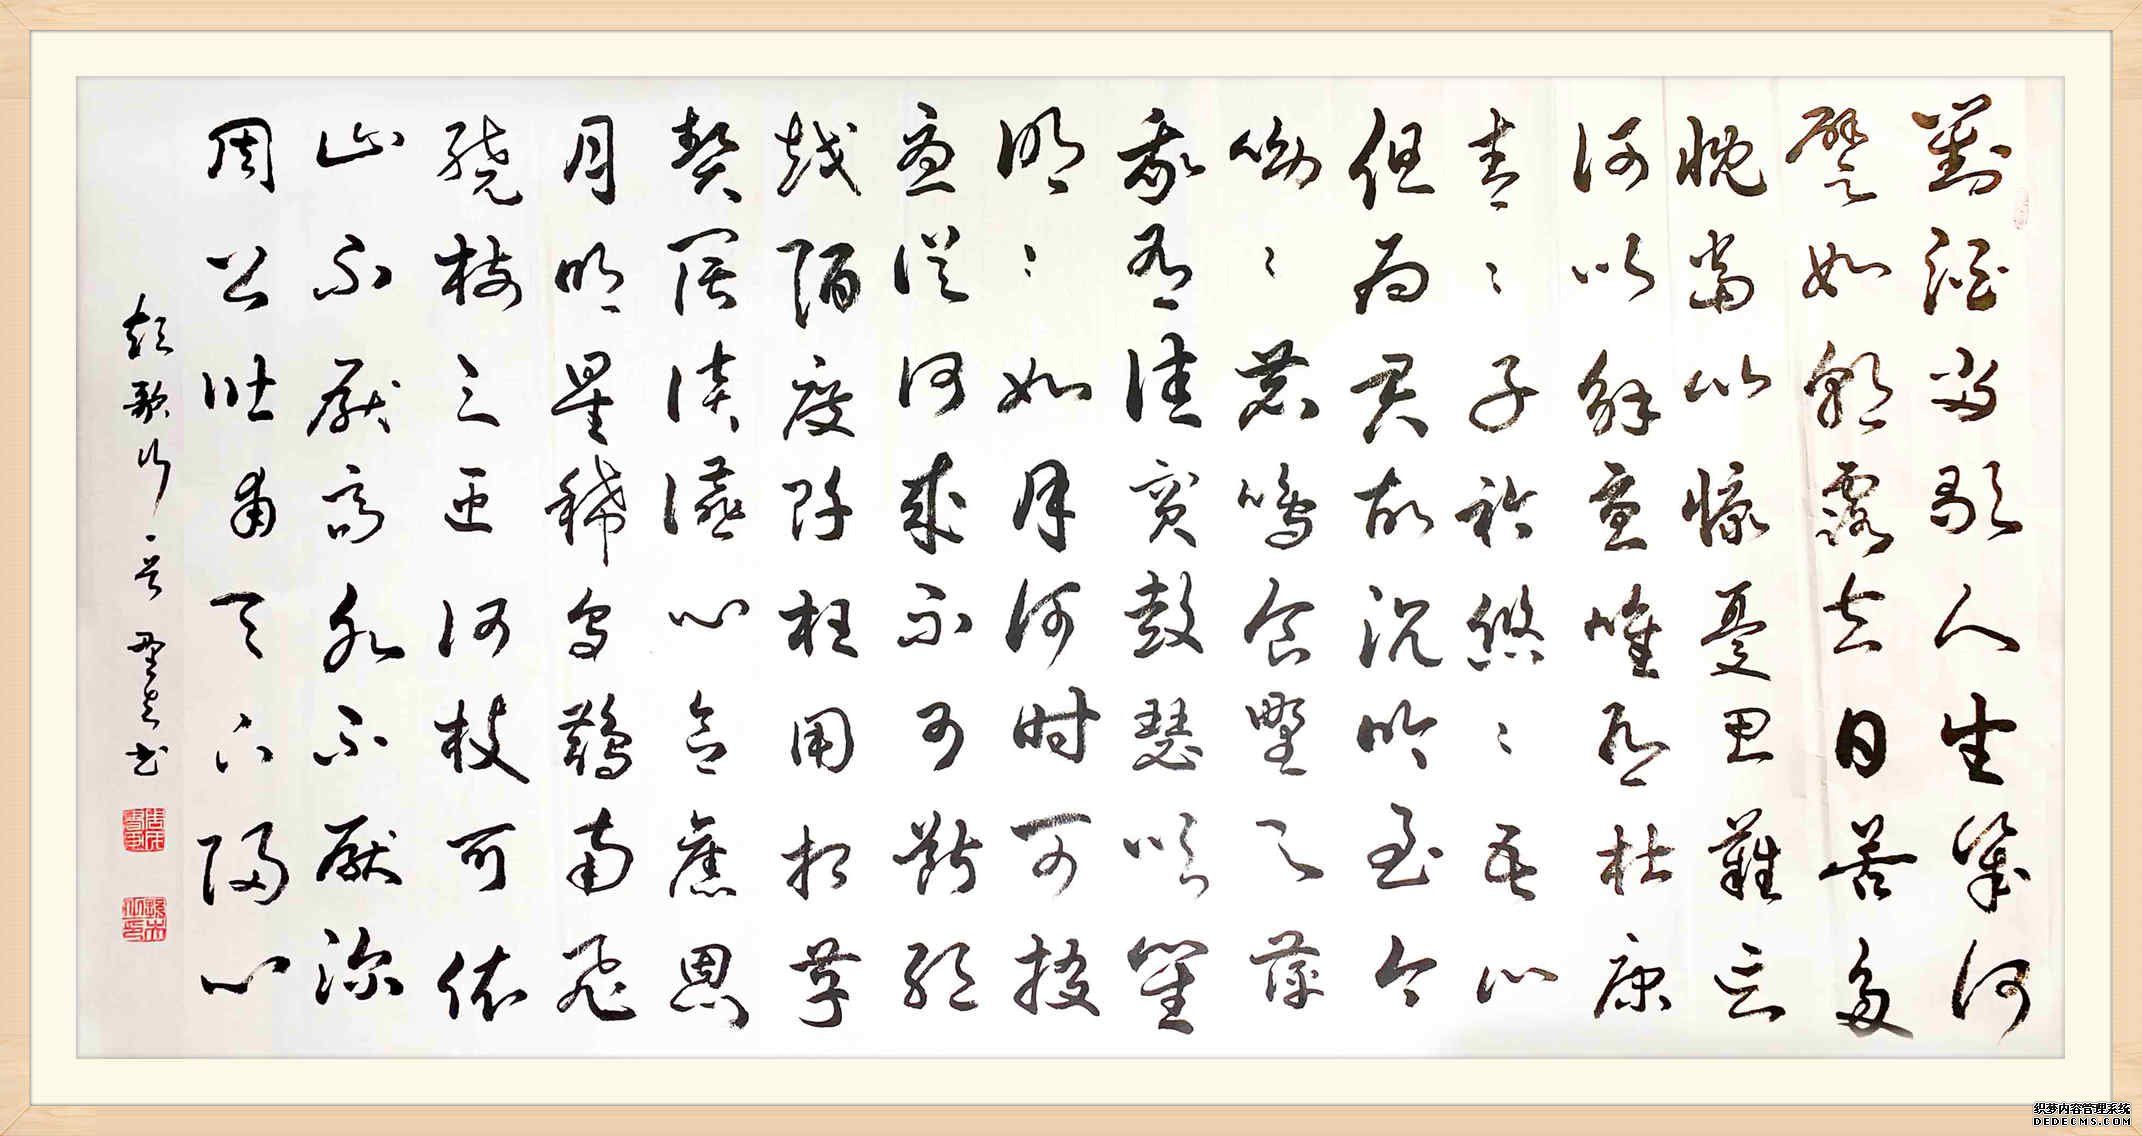 對酒当歌人生幾何
譬如朝露去日苦多
慨當以慷憂思難忘
何以解憂唯有杜康
青々子衿悠々吾心
但为君故沉吟至今
呦々鹿鳴食野之蘋
我有佳賓鼓瑟吹笙
明々如月何时可掇
憂從何來不可斷絕
越陌度阡枉用相存
契闊談讌心念舊恩
月明星稀烏鵲南飛
繞枝三匝何枝可依
山不厭高水不厭深
周公吐哺天下歸心
短歌行一首 书
织梦内容管理系统
DEDECMS.COM